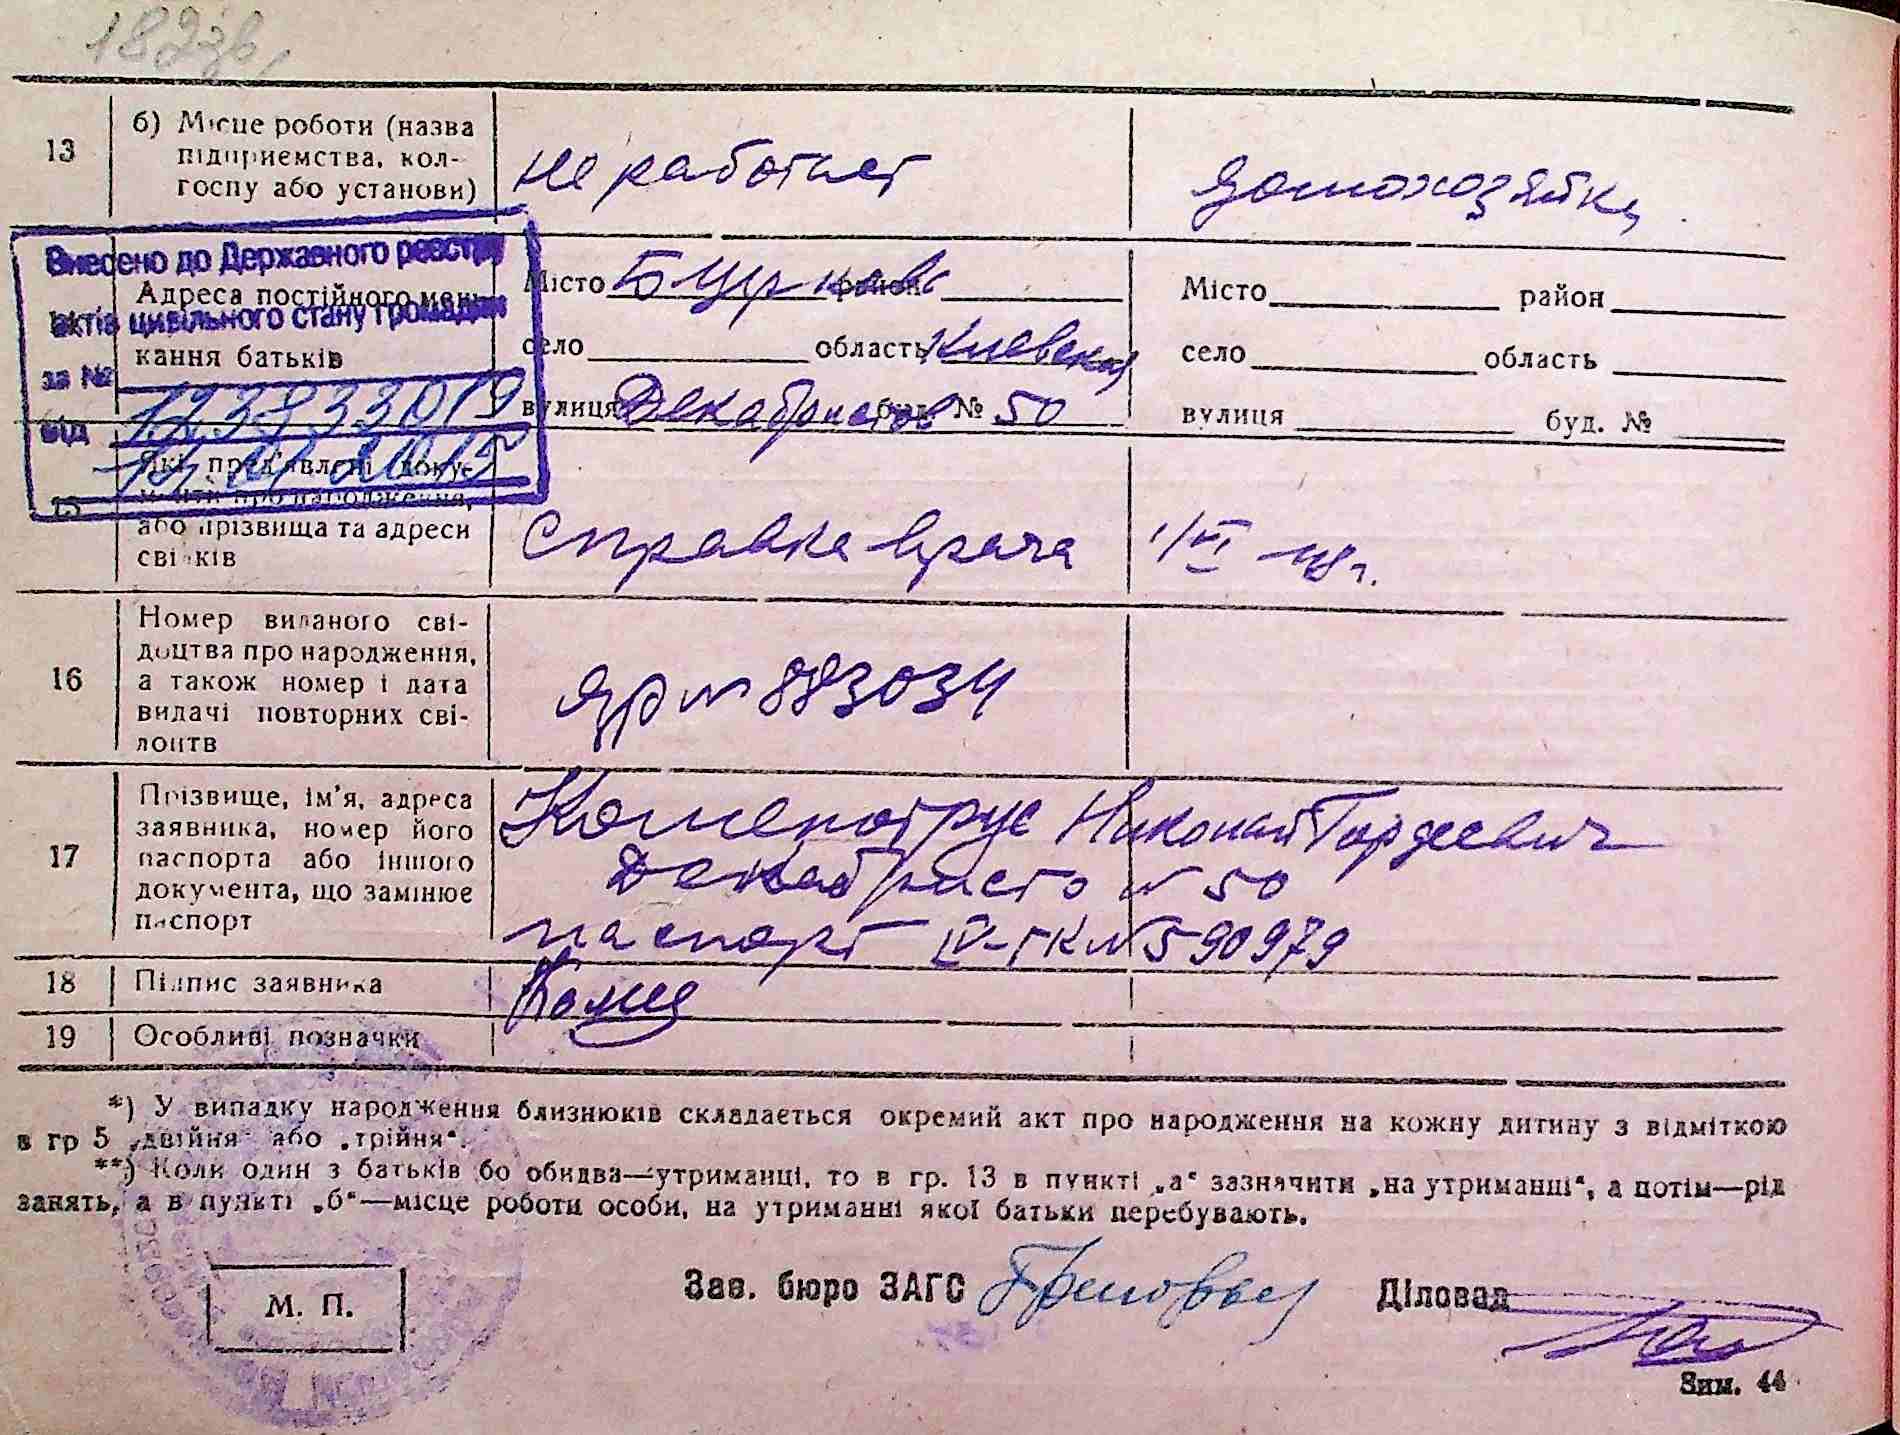 13
б) Місце роботи (назва
підприємства, кол-
госпу або установи)
не работает
домохозяйка
Внесено до Державного реєстру
актів цивільного стану громадян
за № 123833019
від
Адреса постійного меш-
кання батьків
Місто Б Церковь район
село область Киевская
вулиця Декабристов буд. № 50
Місто район
село область
вулиця буд. №
15
Які пред'явлені доку-
менти про народження,
або прізвища та адреси
свідків
Справка врача
1/VI 48 г.
16
Номер виданого сві-
доцтва про народження,
а також номер і дата
видачі повторних сві-
доцтв
ЯР № 883034
17
Прізвище, ім'я, адреса
заявника, номер його
паспорта або іншого
документа, що замінює
паспорт
Николай Гордеевич
№ 50
паспорт IV-ГК № 590979
18
Підпис заявника
19
Особливі позначки
*) У випадку народження близнюків складається окремий акт про народження на кожну дитину з відміткою
в гр 5 „двійня" або „трійня".
**) Коли один з батьків бо обидва—утриманці, то в гр. 13 в пункті „а" зазначити „на утриманні", а потім—рід
занять, а в пункті „б"—місце роботи особи, на утриманні якої батьки перебувають.
М. П.
Зав. бюро ЗАГС
Діловод
Зим. 44